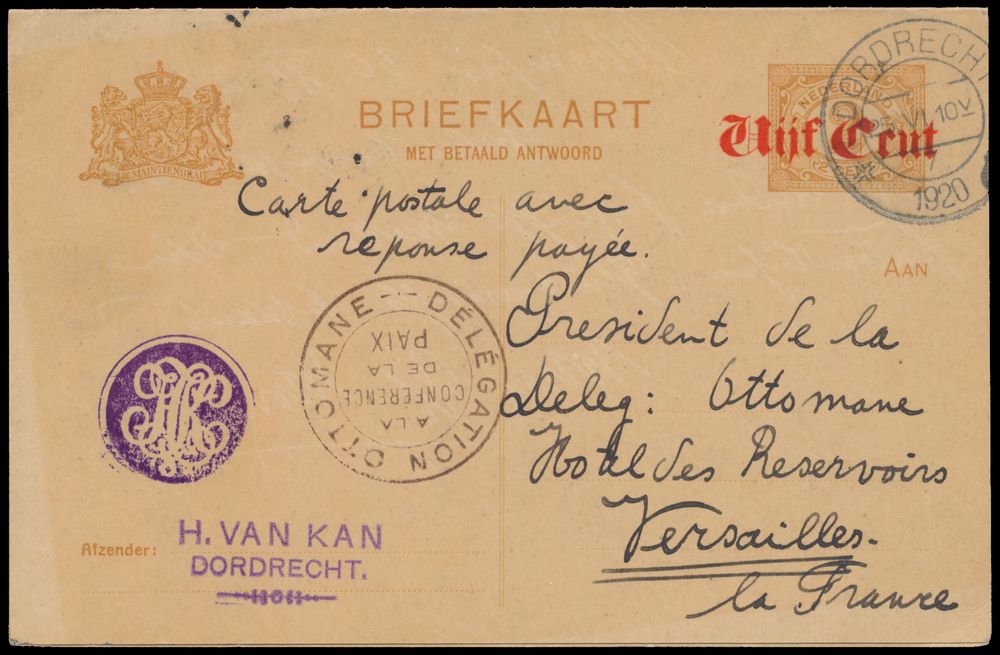 BRIEFKAART
MET BETAALD ANTWOORD
JE MAINTIENDRAI
NEDERLAND
CENT
Vijf Cent
DORDRECHT
25 VI 10V
1920
Carte postale avec
reponse payée.
AAN
President de la
Deleg: Ottomane
Hotel des Reservoirs
Versailles.
la France
DÉLÉGATION OTTOMANE
A LA
CONFÉRENCE
DE LA
PAIX
Afzender:
H. VAN KAN
DORDRECHT.